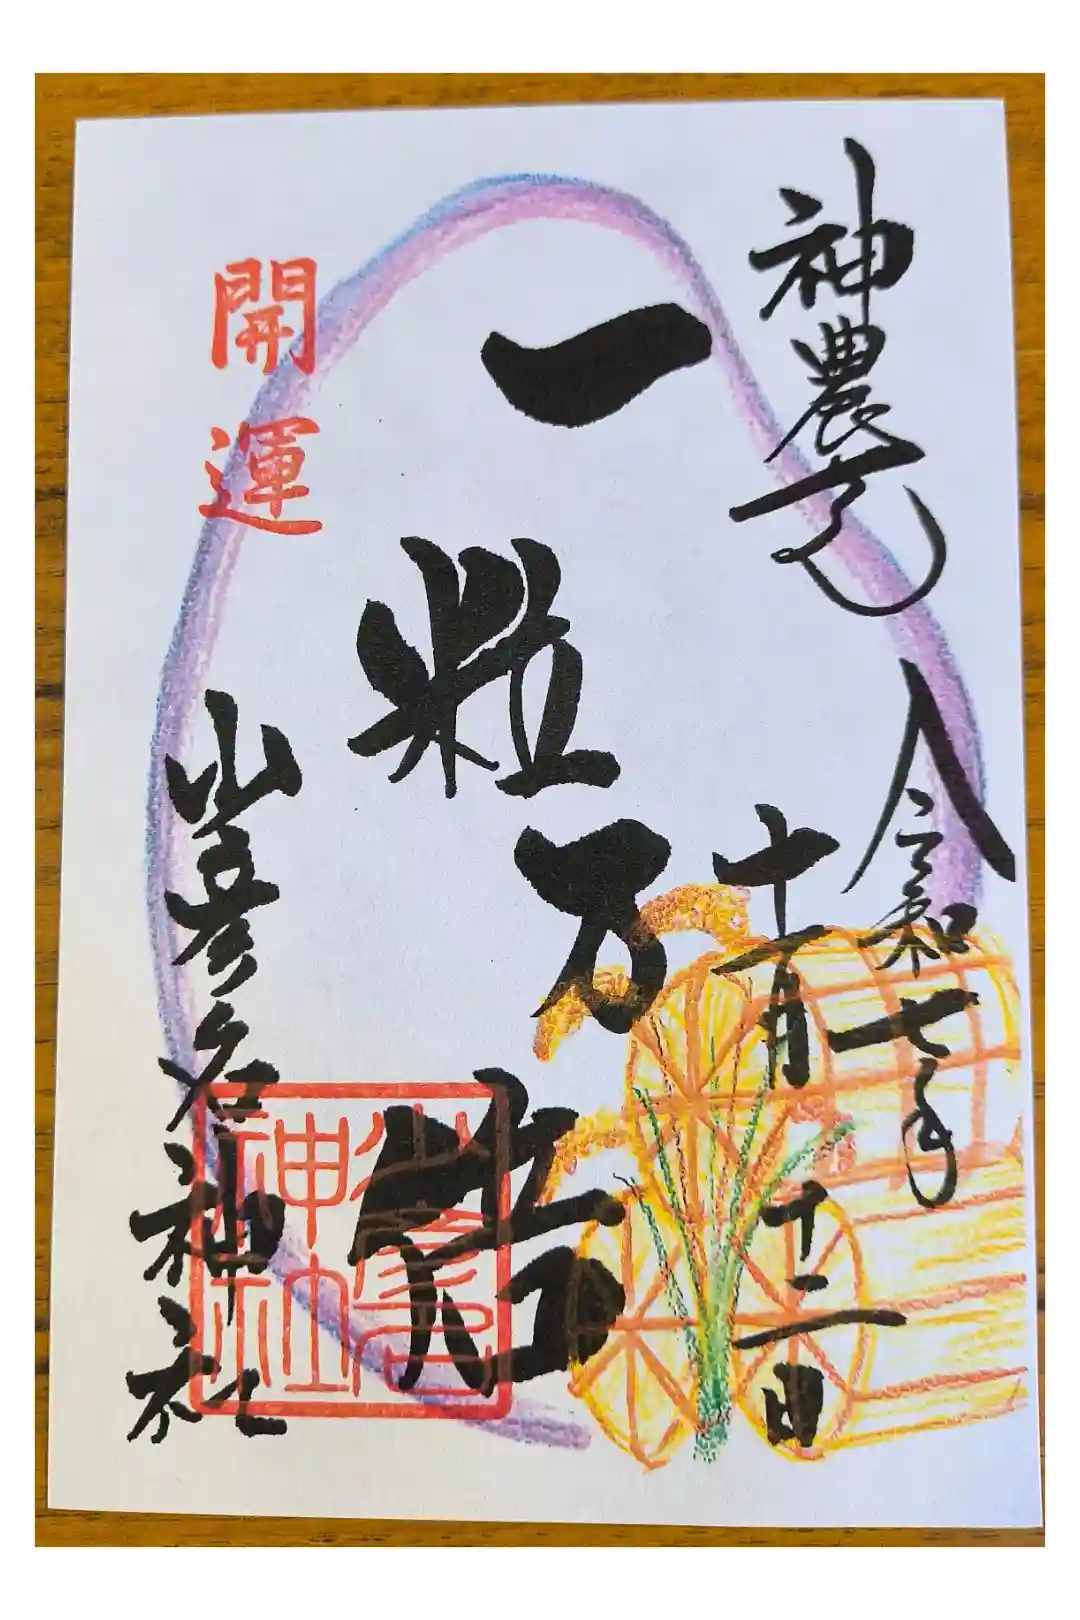 神農
令和七年
十一月十二日
一粒万倍
開運
少彦名神社
少彦名
神社